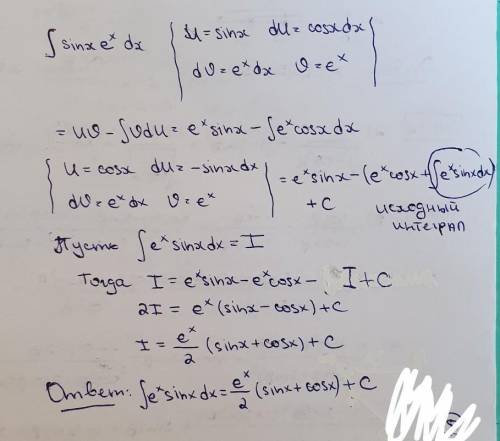 ∫ sinx eˣ dx | U = sinx dU = cosxdx
dϑ = eˣdx ϑ = eˣ |
= Uϑ - ∫ϑdU = eˣsinx - ∫eˣcosxdx
| U = cosx dU = -sinxdx
dϑ = eˣdx ϑ = eˣ | = eˣsinx - (eˣcosx + ∫eˣsinxdx)
+ C исходный
интеграл
Пусть ∫eˣsinxdx = I
Тогда I = eˣsinx - eˣcosx - I + C
2I = eˣ(sinx - cosx) + C
I = eˣ/2 (sinx + cosx) + C
Ответ: ∫eˣsinxdx = eˣ/2 (sinx + cosx) + C